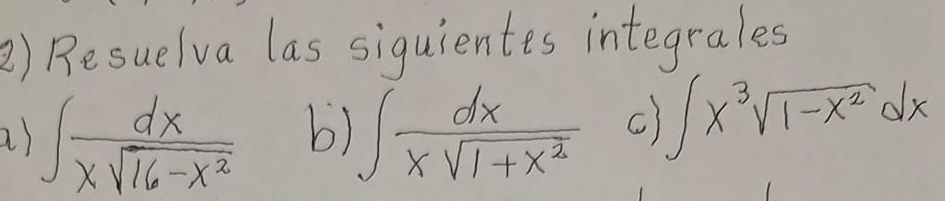 2) Resuelva las siguientes integrales
a) ∫ dx / (x √(16-x²)) b) ∫ dx / (x √(1+x²)) c) ∫ x³ √(1-x²) dx